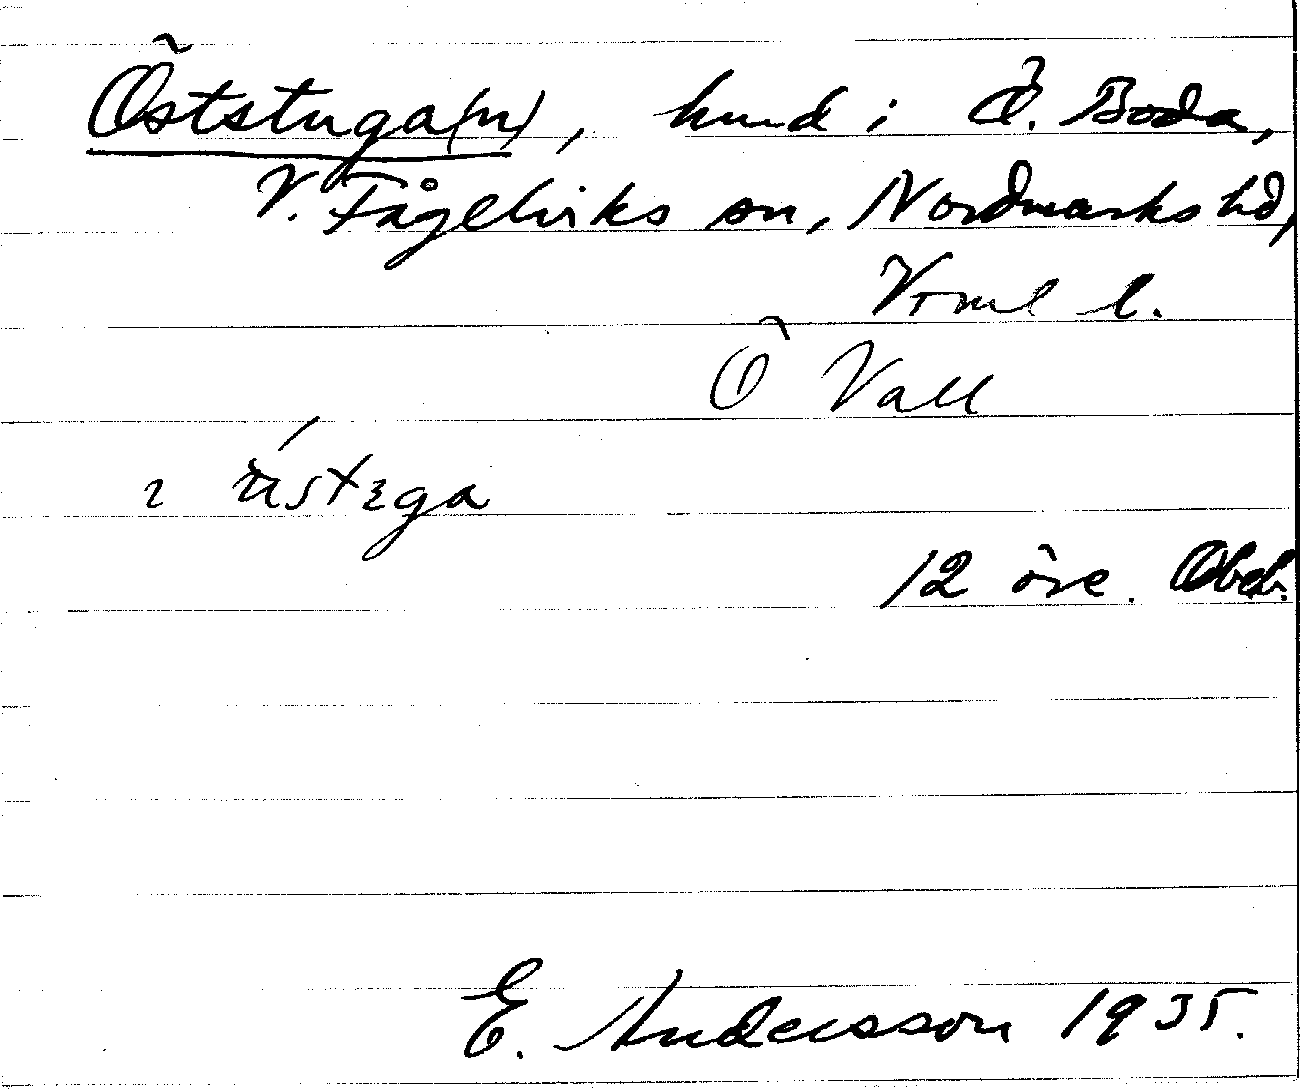 Öststuga(n), hmd i Ö. Boda,
V. Fågelviks sn, Nordmarks hd,
Vrml l.
Ö Vall
12 öre. Obeb.
E. Andersson 1935.